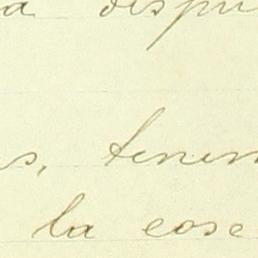 a dispu
s, tenem
la cose